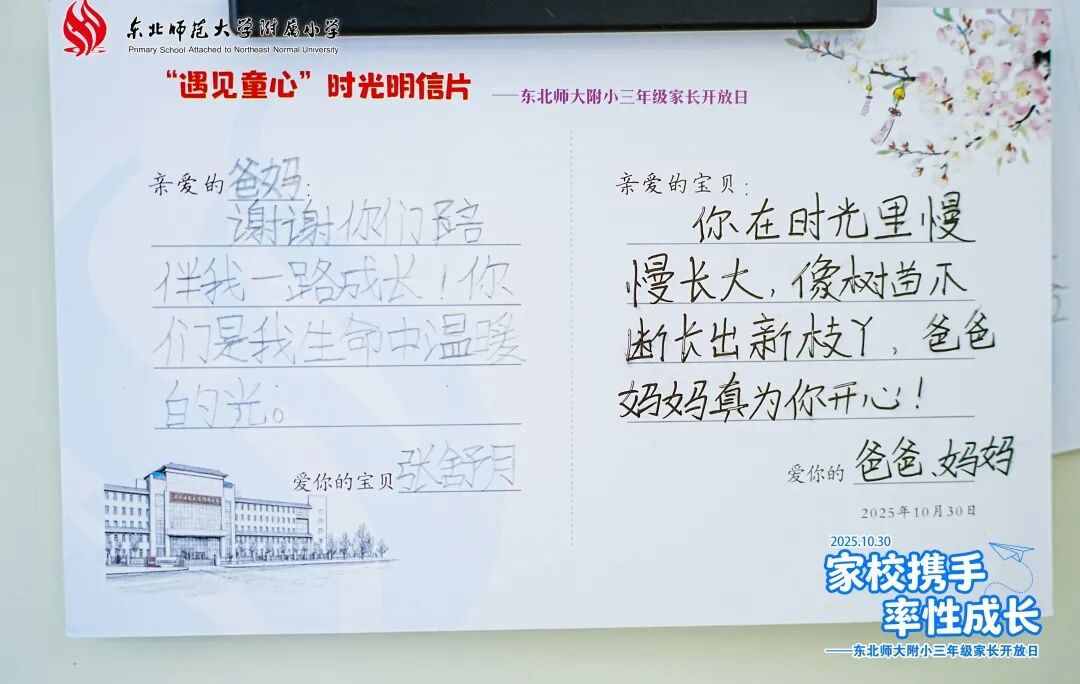 东北师范大学附属小学
Primary School Attached to Northeast Normal University
“遇见童心”时光明信片 ——东北师大附小三年级家长开放日
亲爱的爸妈:
谢谢你们陪
伴我一路成长!你
们是我生命中温暖
的光。
爱你的宝贝张舒月
亲爱的宝贝:
你在时光里慢
慢长大,像树苗不
断长出新枝丫,爸爸
妈妈真为你开心!
爱你的爸爸、妈妈
2025年10月30日
2025.10.30
家校携手
率性成长
——东北师大附小三年级家长开放日